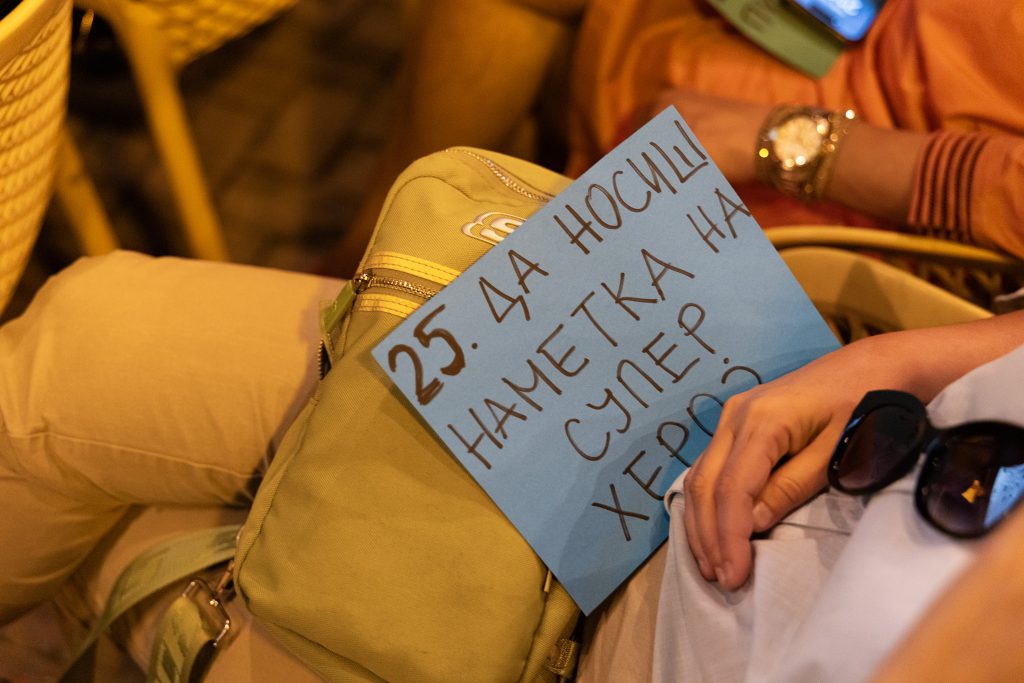 25. ДА НОСИШ
НАМЕТКА НА
СУПЕР
ХЕРО?